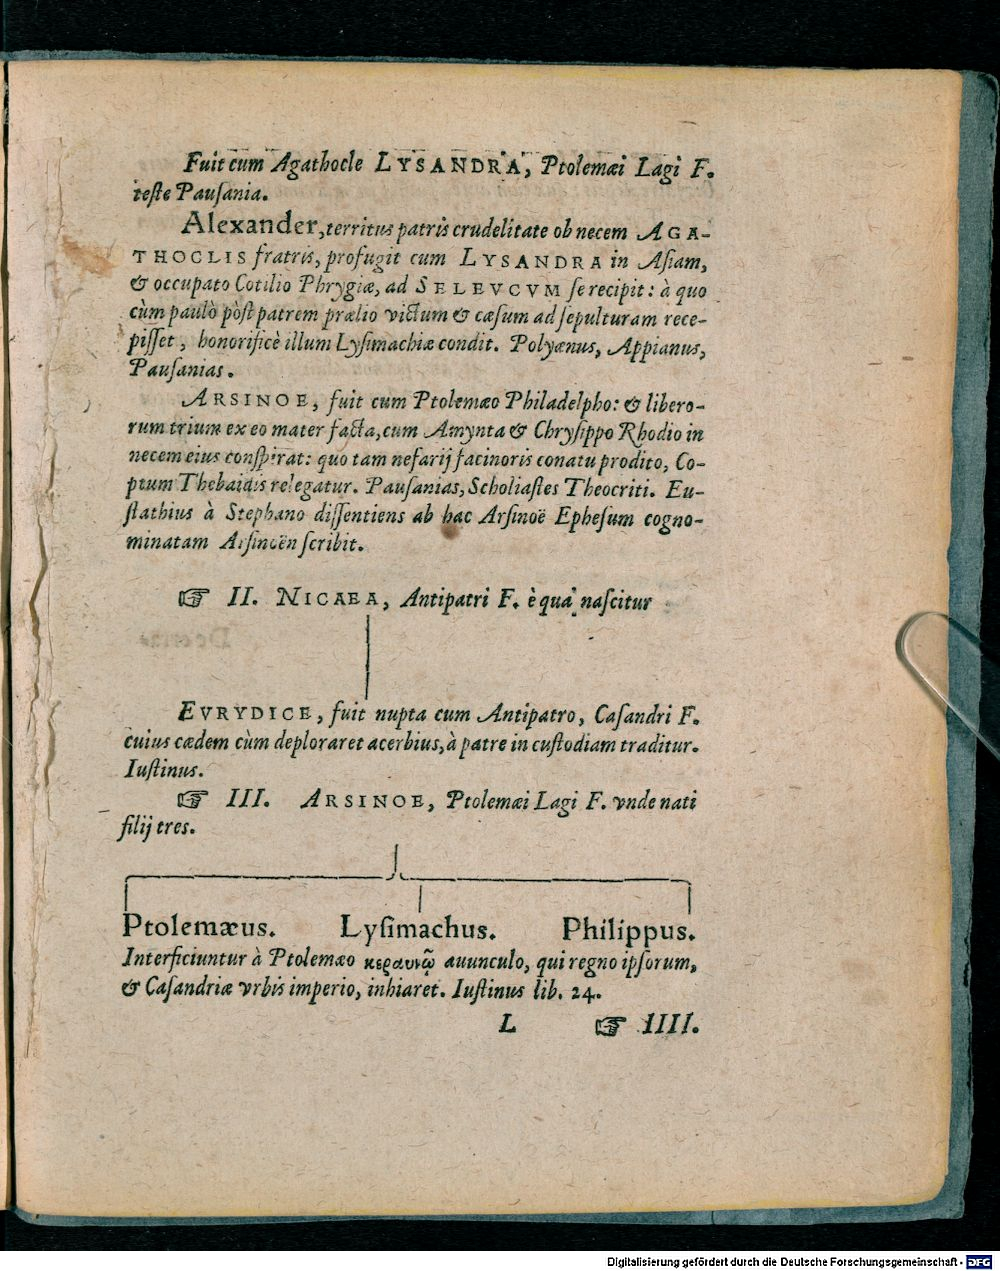 Fuit cum Agathocle LYSANDRA, Ptolemæi Lagi F.
teste Pausania.
Alexander, territus patris crudelitate ob necem AGA-
THOCLIS fratris, profugit cum LYSANDRA in Asiam,
& occupato Cotilio Phrygiæ, ad SELEVCVM se recipit: à quo
cùm paulò pòst patrem prælio victum & cæsum ad sepulturam rece-
pisset, honorificè illum Lysimachiæ condit. Polyænus, Appianus,
Pausanias.
ARSINOE, fuit cum Ptolemæo Philadelpho: & libero-
rum trium ex eo mater facta, cum Amynta & Chrysippo Rhodio in
necem eius conspirat: quo tam nefarij facinoris conatu prodito, Co-
ptum Thebaidis relegatur. Pausanias, Scholiastes Theocriti. Eu-
stathius à Stephano dissentiens ab hac Arsinoë Ephesum cogno-
minatam Arsinoën scribit.
☞ II. NICAEA, Antipatri F. è qua nascitur
EVRYDICE, fuit nupta cum Antipatro, Casandri F.
cuius cædem cùm deploraret acerbius, à patre in custodiam traditur.
Iustinus.
☞ III. ARSINOE, Ptolemæi Lagi F. vnde nati
filij tres.
Ptolemæus. Lysimachus. Philippus.
Interficiuntur à Ptolemæo κεραυνῷ auunculo, qui regno ipsorum,
& Casandriæ vrbis imperio, inhiaret. Iustinus lib. 24.
L ☞ IIII.
Digitalisierung gefördert durch die Deutsche Forschungsgemeinschaft - DFG